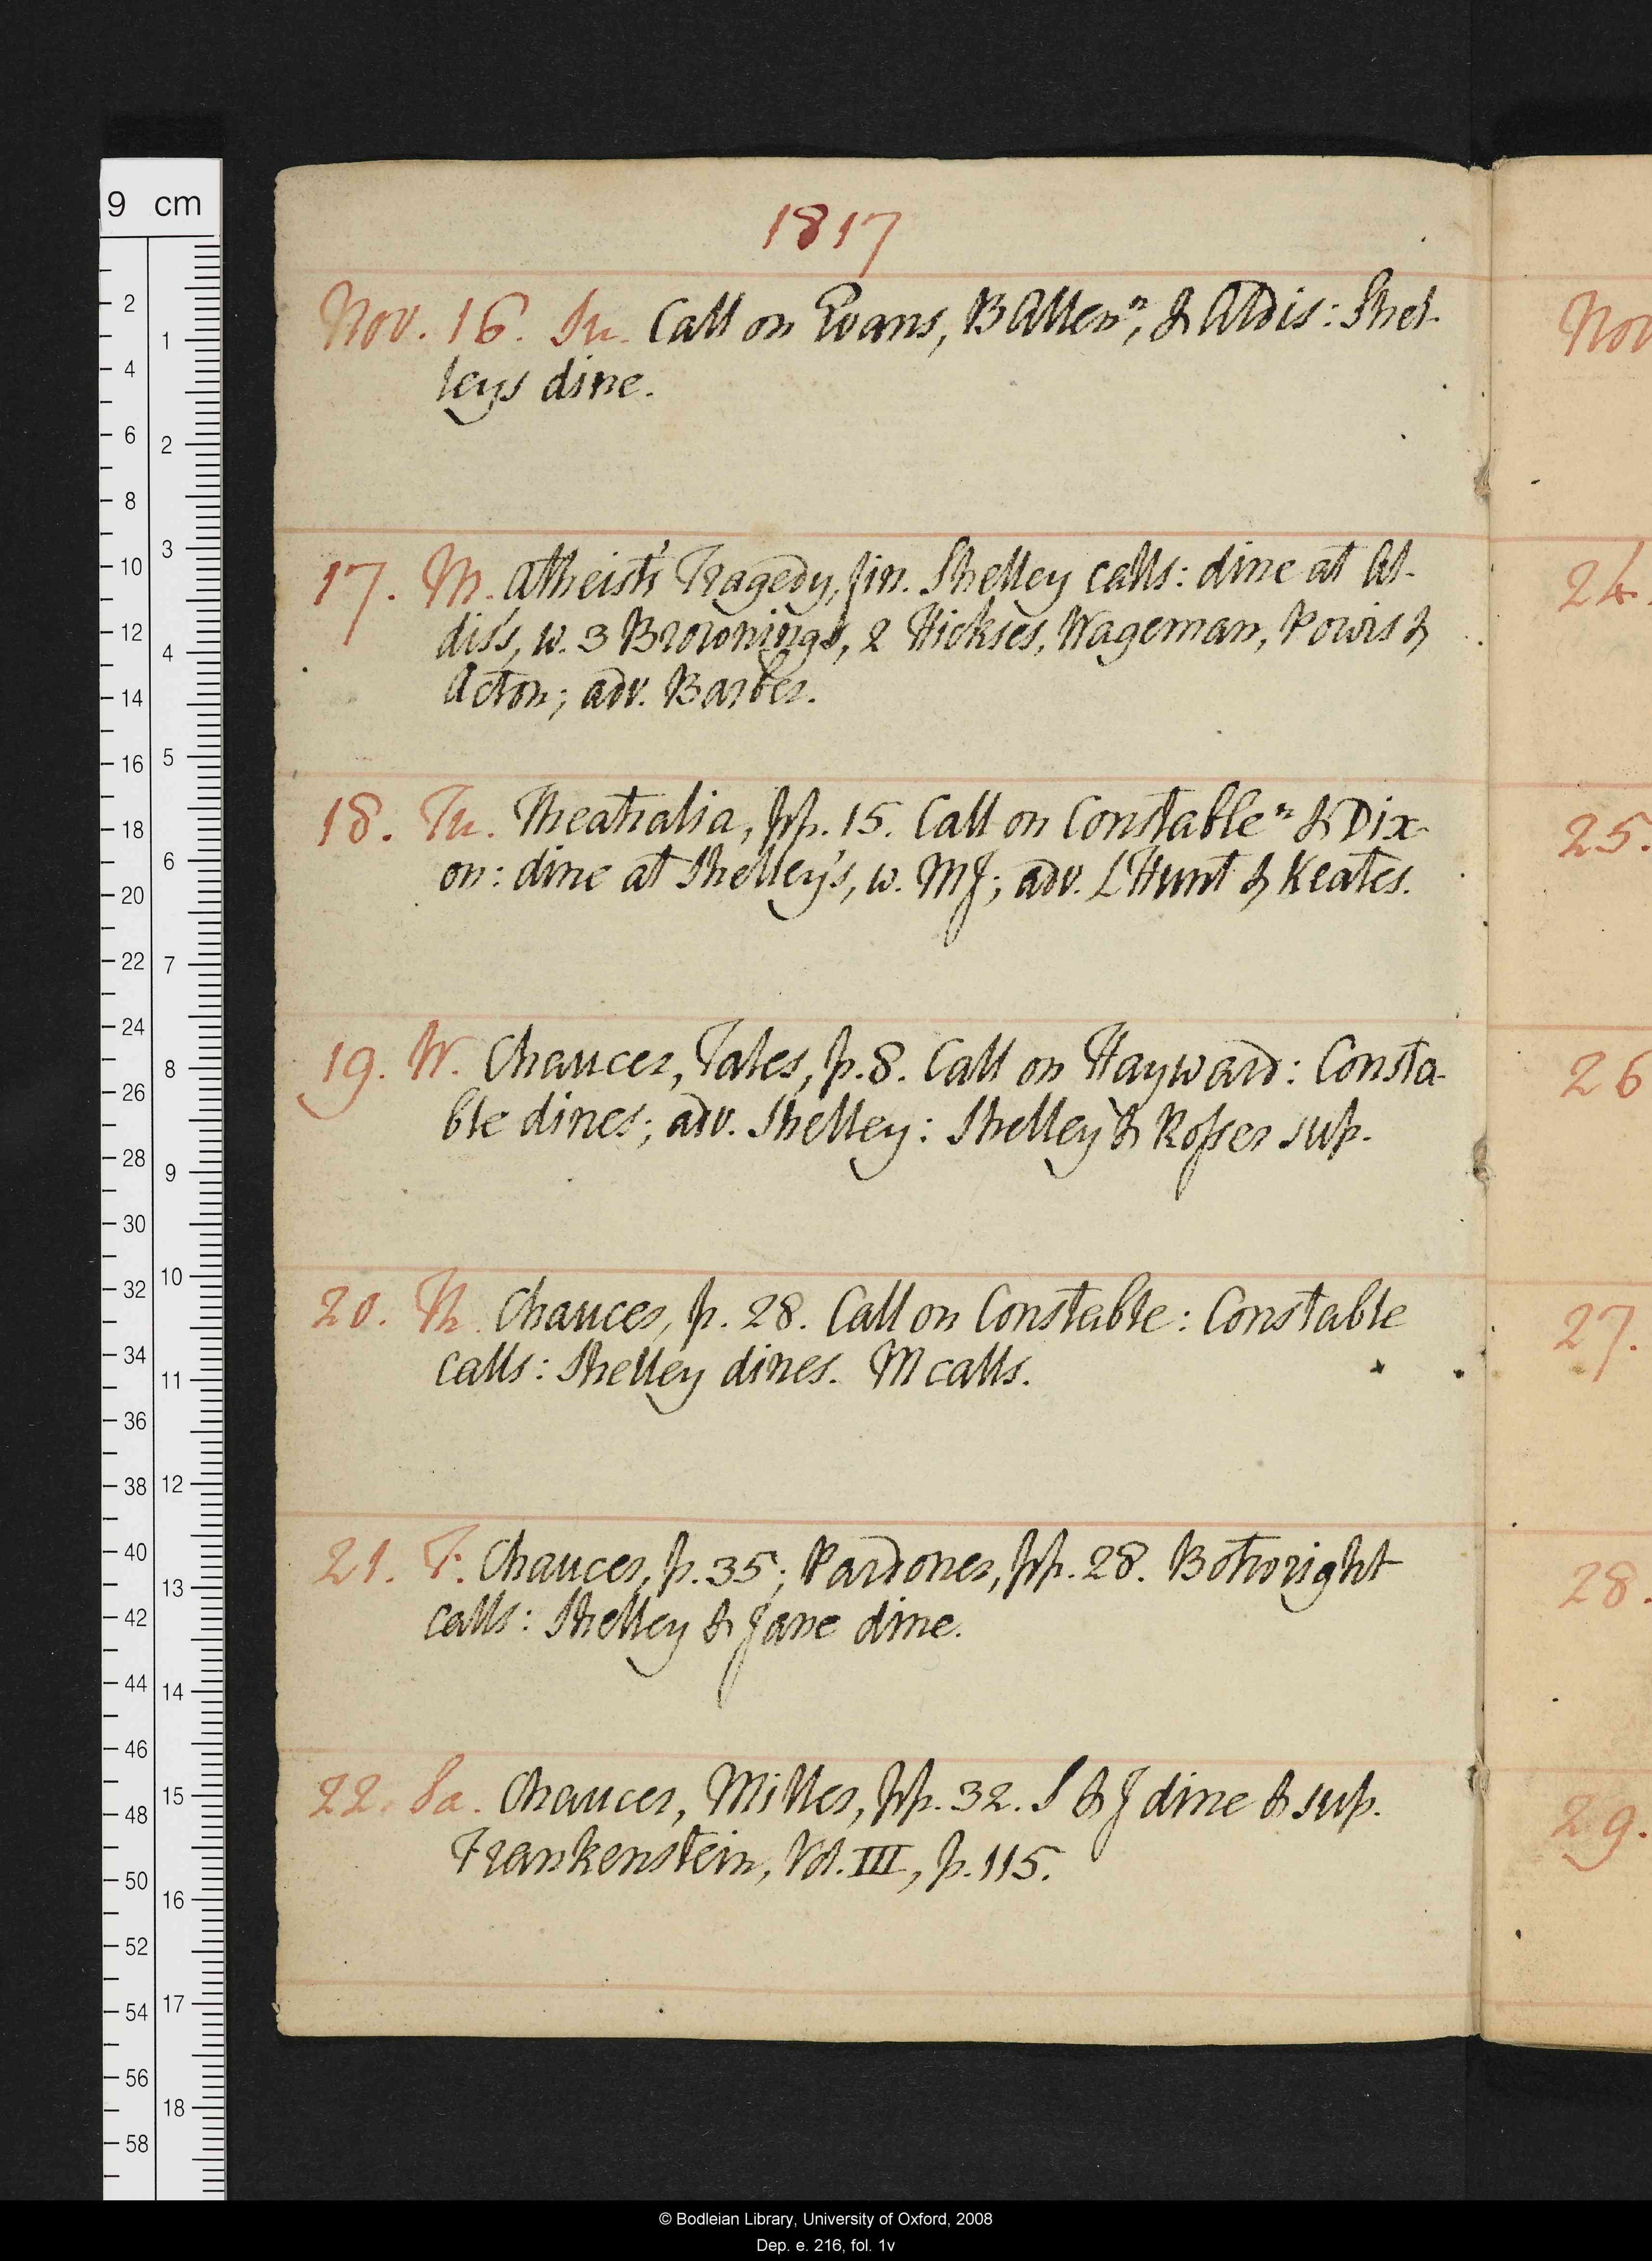 1817
Nov. 16. Su. Call on Evans, B Allen n, & Aldis: Shel-
leys dine.
17. M. Atheist's Tragedy, fin. Shelley calls: dine at Al-
dis's, w. 3 Brownings, 2 Hickses, Wageman, Powis &
Acton; adv. Barber.
18. Tu. Theatralia, pp. 15. Call on Constable n & Dix-
on: dine at Shelley's, w. MJ; adv. L Hunt & Keates.
19. W. Chaucer, Tales, p. 8. Call on Hayward: Consta-
ble dines; adv. Shelley: Shelley & Rosser sup.
20. Th. Chaucer, p. 28. Call on Constable: Constable
calls: Shelley dines. M calls.
21. F. Chaucer, p. 35; Pardoner, pp. 28. Botwright
calls: Shelley & Jane dine.
22. Sa. Chaucer, Miller, pp. 32. S & J dine & sup.
Frankenstein, Vol. III, p. 115.
Nov
24.
25.
26
27.
28.
29.
9 cm
2 4 6 8 10 12 14 16 18 20 22 24 26 28 30 32 34 36 38 40 42 44 46 48 50 52 54 56 58
1 2 3 4 5 6 7 8 9 10 11 12 13 14 15 16 17 18
© Bodleian Library, University of Oxford, 2008
Dep. e. 216, fol. 1v